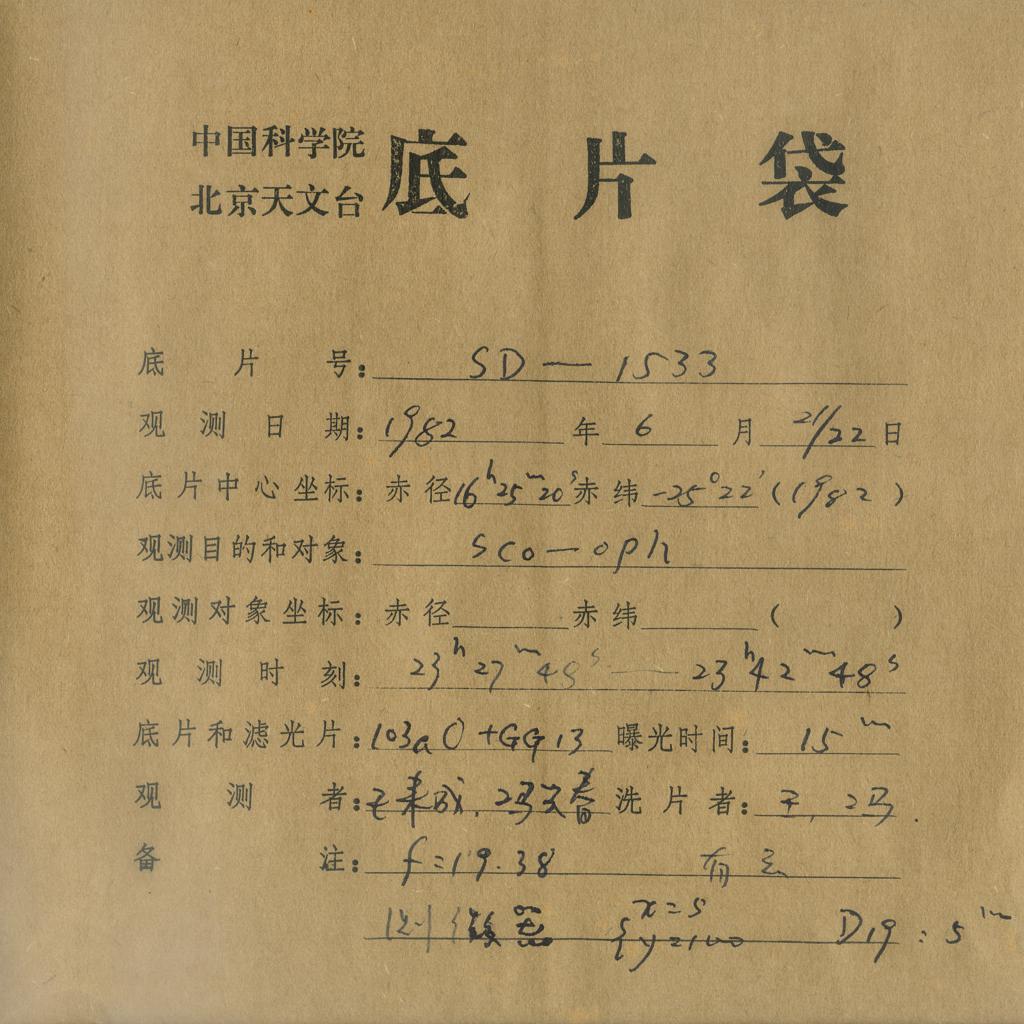 中国科学院
北京天文台
底片袋
底片号： SD—1533
观测日期： 1982 年 6 月 21/22 日
底片中心坐标：赤径 16h25m20s 赤纬 -25°22′ (1982)
观测目的和对象： Sco—oph
观测对象坐标：赤径 赤纬 ( )
观测时刻： 23h27m48s — 23h42m48s
底片和滤光片： 103aO+GG13 曝光时间： 15m
观测者： 王 成, 冯 春 洗片者： 王, 冯.
备注： f=19.38 有云
{x=5 y=2100 D19:5m